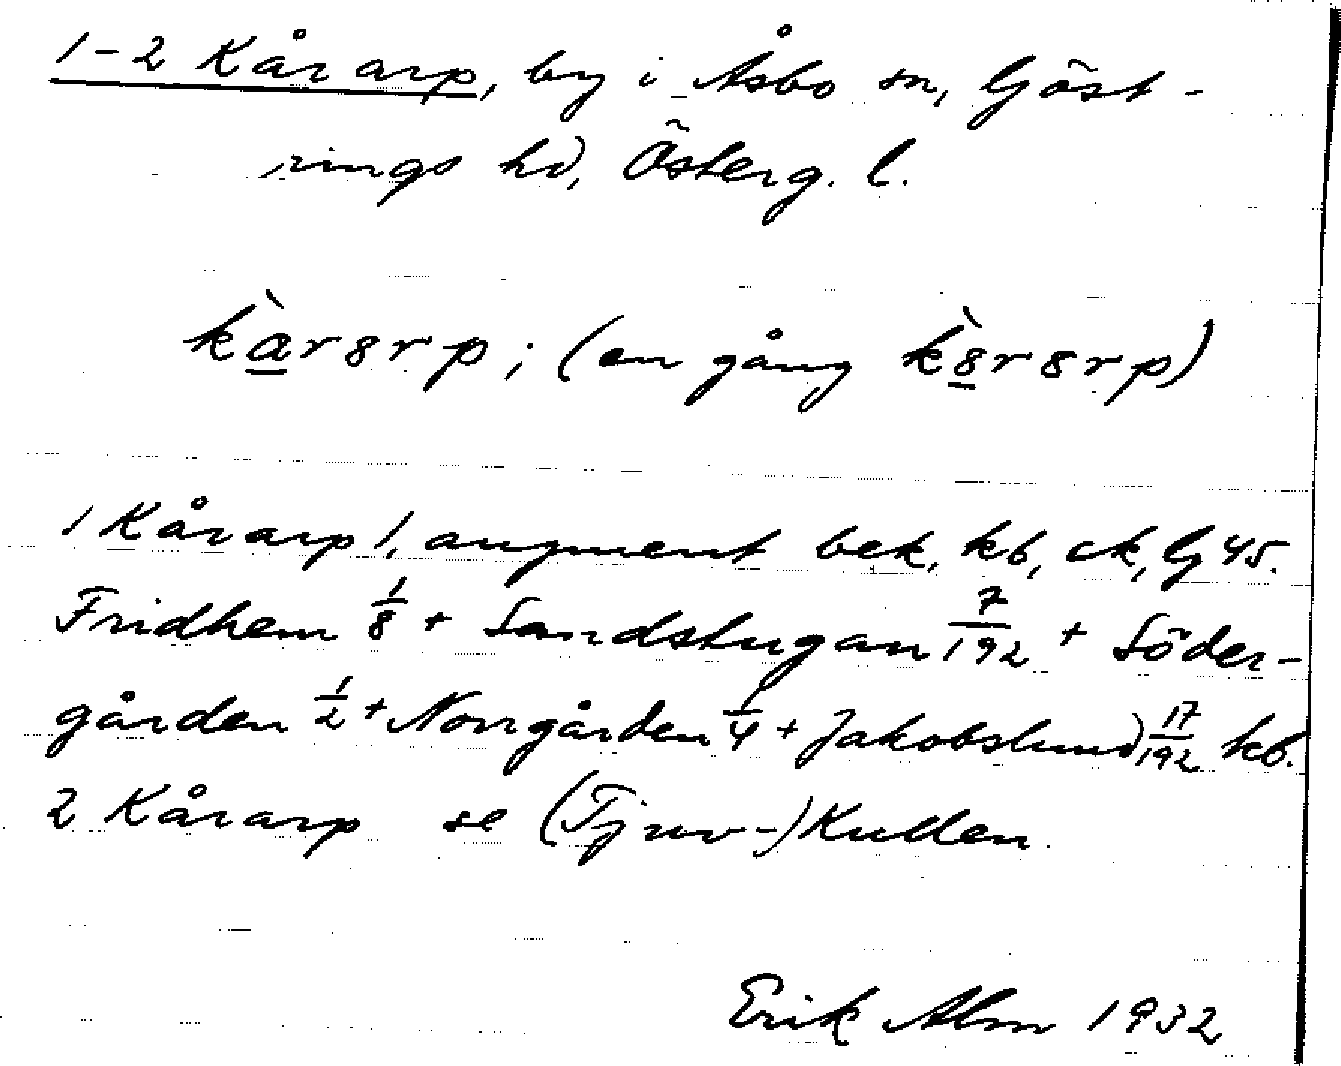 1-2 Kårarp, by i Åsbo sn, Göst-
rings hd, Österg. l.
kàr8rp; (en gång k8̀r8rp)
1 Kårarp 1, augment bek, kb, ck, Gj 45.
Fridhem 1/8 + Sandstugan 7/192 + Söder-
gården 1/2 + Norrgården 1/4 + Jakobslund 17/192 kb.
2 Kårarp se (Tjuv-)Kullen
Erik Alm 1932